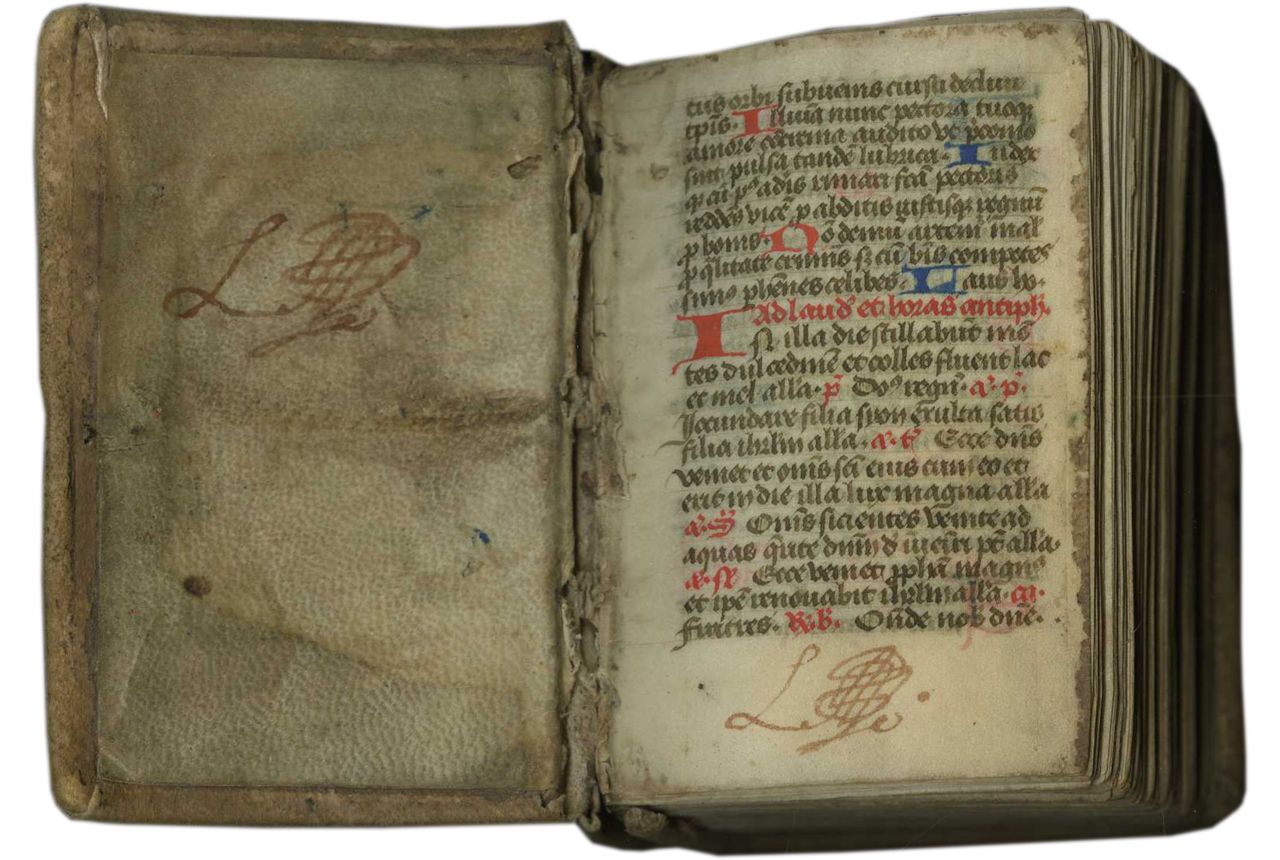 L
tus orbi subueniens cursu declini
tp̄is. Illuīa nunc pectora tuoq
amore cōcrema audito vt p̄conio
sint pulsa tandē lubrica. Iudex
q̄ cū pͦ adīs rimari fc̄a pectoris
reddēs vicē p abditis iustisq; regnū
p bonis. Nō demū artem̄ mal
p q̄litate crimīs sꝫ cū bt̄īs compotes
simꝰ phēnes celibes. Laus ho.
Ad laud̄ et horas antiph.
IN illa die stillabūt mō
tes dulcedinē et colles fluent lac
et mel alla. p̄ Dn̄s regn̄. a. p.
Jocundare filia syon exulta satis
filia ihrlm alla. a. t̄ Ecce dn̄s
veniet et om̄s sc̄i eius cum eo et
erit in die illa lux magna alla
Om̄s sicientes venite ad
aquas q̄rite dn̄m d inueīri pt̄ alla.
Ecce veniet ꝓpha magnꝰ
et ip̄e renouabit ihrlm alla. a.
R. b. Oñde nob dn̄e.
L